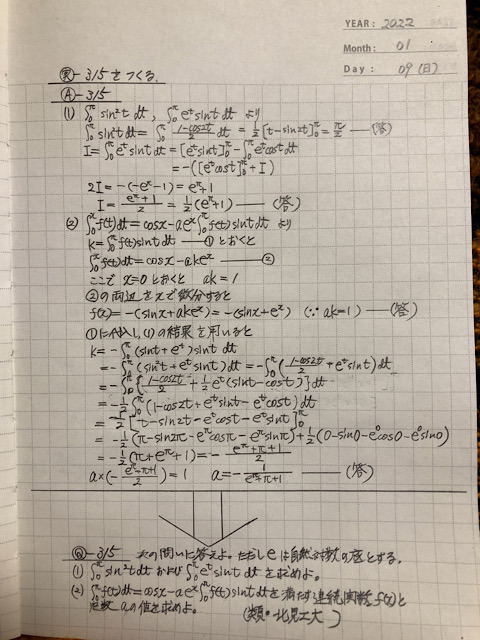 YEAR: 2022
Month: 01
Day: 09 (日)
実-315をつくる.
Ⓐ-315
(1) ∫₀^π sin²t dt, ∫₀^π e^t sint dt より
∫₀^π sin²t dt = ∫₀^π (1-cos2t)/2 dt = 1/2[t-sin2t]₀^π = π/2 ——(答)
I = ∫₀^π e^t sint dt = [e^t sint]₀^π - ∫₀^π e^t cost dt
= -([e^t cost]₀^π + I)
2I = -(-e^π-1) = e^π+1
I = (e^π+1)/2 = 1/2(e^π+1) ——(答)
(2) ∫₀^x f(t)dt = cosx - ae^x∫₀^π f(t)sint dt より
k = ∫₀^π f(t)sint dt ——① とおくと
∫₀^x f(t)dt = cosx - ake^x ——②
ここで x=0とおくと ak=1
②の両辺をxで微分すると
f(x) = -(sinx+ake^x) = -(sinx+e^x) (∵ak=1) ——(答)
①に代入し, (1)の結果を用いると
k = -∫₀^π (sint+e^t)sint dt
= -∫₀^π (sin²t+e^t sint)dt = -∫₀^π ((1-cos2t)/2 + e^t sint)dt
= -∫₀^π {(1-cos2t)/2 + 1/2 e^t(sint-cost)}dt
= -1/2∫₀^π (1-cos2t+e^t sint-e^t cost)dt
= -1/2[t-sin2t-e^t cost-e^t sint]₀^π
= -1/2(π-sin2π-e^π cosπ-e^π sinπ)+1/2(0-sin0-e⁰cos0-e⁰sin0)
= -1/2(π+e^π+1) = -(e^π+π+1)/2
a×(-(e^π+π+1)/2) = 1 a = -1/(e^π+π+1) ——(答)
Ⓠ-315 次の問いに答えよ. ただし e は自然対数の底とする.
(1) ∫₀^π sin²t dt および ∫₀^π e^t sint dt を求めよ.
(2) ∫₀^x f(t)dt = cosx - ae^x∫₀^π f(t)sint dt を満たす連続関数 f(x)と
定数 a の値を求めよ. (類・北見工大)